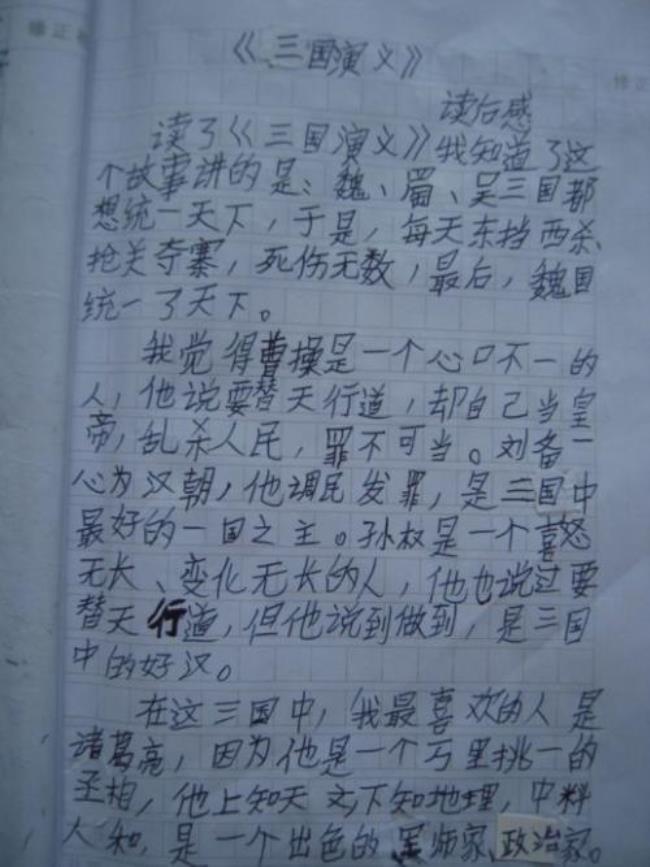 《三国演义》
读后感
读了《三国演义》我知道了这
个故事讲的是：魏、蜀、吴三国都
想统一天下，于是，每天东挡西杀、
抢关夺寨，死伤无数，最后，魏国
统一了天下。
我觉得曹操是一个心口不一的
人，他说要替天行道，却自己当皇
帝，乱杀人民，罪不可当。刘备一
心为汉朝，他调民发罪，是三国中
最好的一国之主。孙权是一个喜怒
无长、变化无长的人，他也说过要
替天行道，但他说到做到，是三国
中的好汉。
在这三国中，我最喜欢的人是
诸葛亮，因为他是一个万里挑一的
丞相，他上知天文下知地理，中料
人和，是一个出色的军师家、政治家。
修正